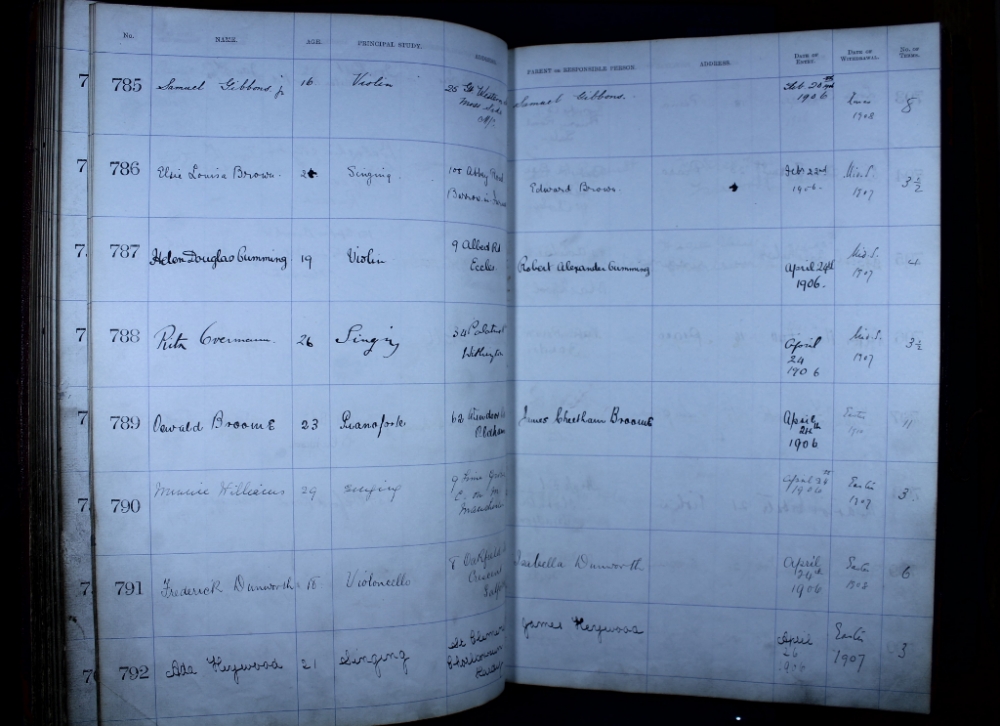 No. NAME. AGE. PRINCIPAL STUDY. PARENT OR RESPONSIBLE PERSON. ADDRESS. DATE OF ENTRY. DATE OF WITHDRAWAL. NO. OF TERMS.
785 Samuel Gibbons jr 16 Violin Samuel Gibbons. 8
Moss Side
1906
1908
786 Elsie Louisa Brown. Singing. 105 Abbey Road Feb 23rd Mids. 3½
Barrow-in- Edward Brown. 1906. 1907
787 Helen Douglas Cumming 19 Violin 9 Albert Rd Robert Alexander Cumming April 24th Mids. 4
Eccles 1906. 1907
788 Rita Overmann. 26 Singing 34 April Mids. 3½
Withington 24 1907
1906
789 Oswald Broome 23 Pianoforte 62 James Cheetham Broome April Easter 11
Oldham 24th
1906
790 Minnie Williams 29 Singing 9 April Easter 3
1906 1907
791 Frederick Dunworth 18 Violoncello 8 Oakfield Isabella Dunworth April Easter 6
Crescent 24th 1908
1906
792 Ada Heywood 21 Singing James Heywood April Easter 3
26 1907
1906